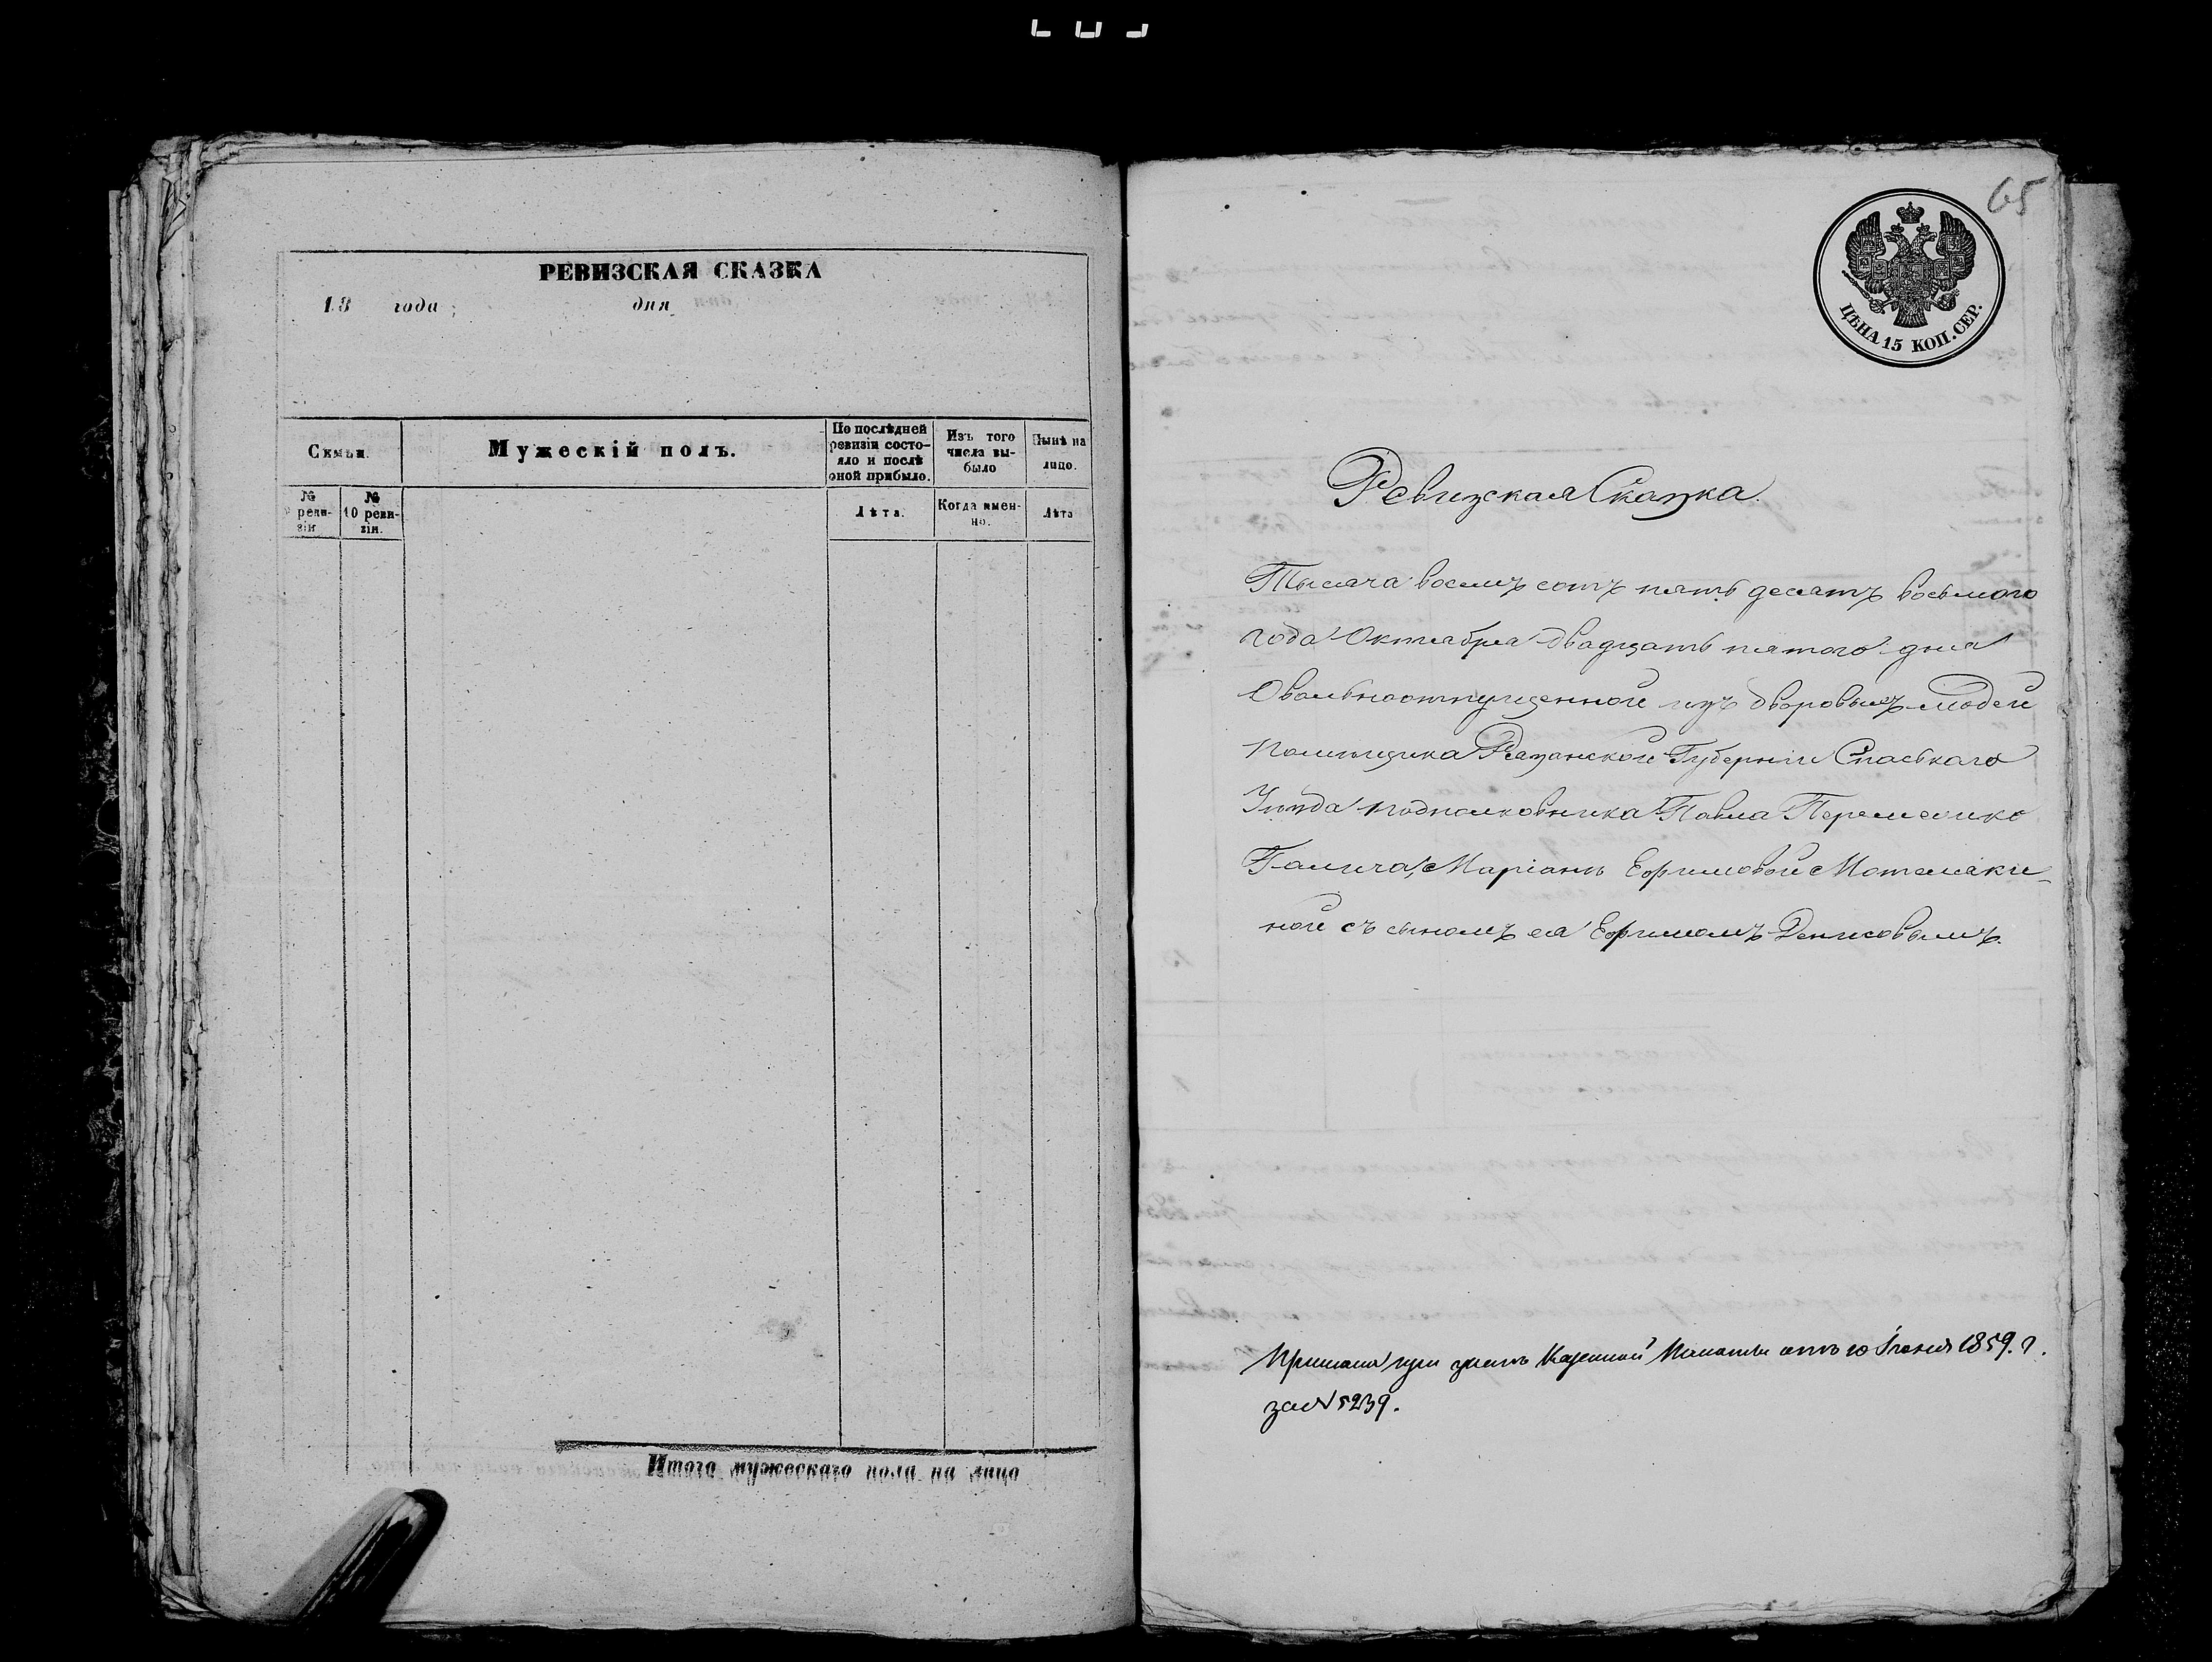 РЕВИЗСКАЯ СКАЗКА
18 года дня
Семьи.
Мужескій полъ.
По послѣдней ревизіи состо-
яло и послѣ
оной прибыло.
Изъ того
числа вы-
было
Нынѣ на
лицо.
№
ревизіи
№
10 реви-
зіи.
Лѣта.
Когда имен-
но.
Лѣта
Итого мужескаго пола на лицо
65
ЦѢНА 15 КОП. СЕР.
Ревизская Сказка.
Тысяча восемъ сотъ пять десятъ восьмого
года Октября двадцать пятого дня
О вольноотпущенной изъ дворовыхъ людей
Помѣщика Рязанской Губерніи Спаскаго
Уѣзда подполковника Павла
Галича, Маріанѣ Ефимовой
ной съ сыномъ ея Ефимомъ Денисовымъ.
Казенной Палаты отъ 10 Іюня 1859. г.
за № 5239.